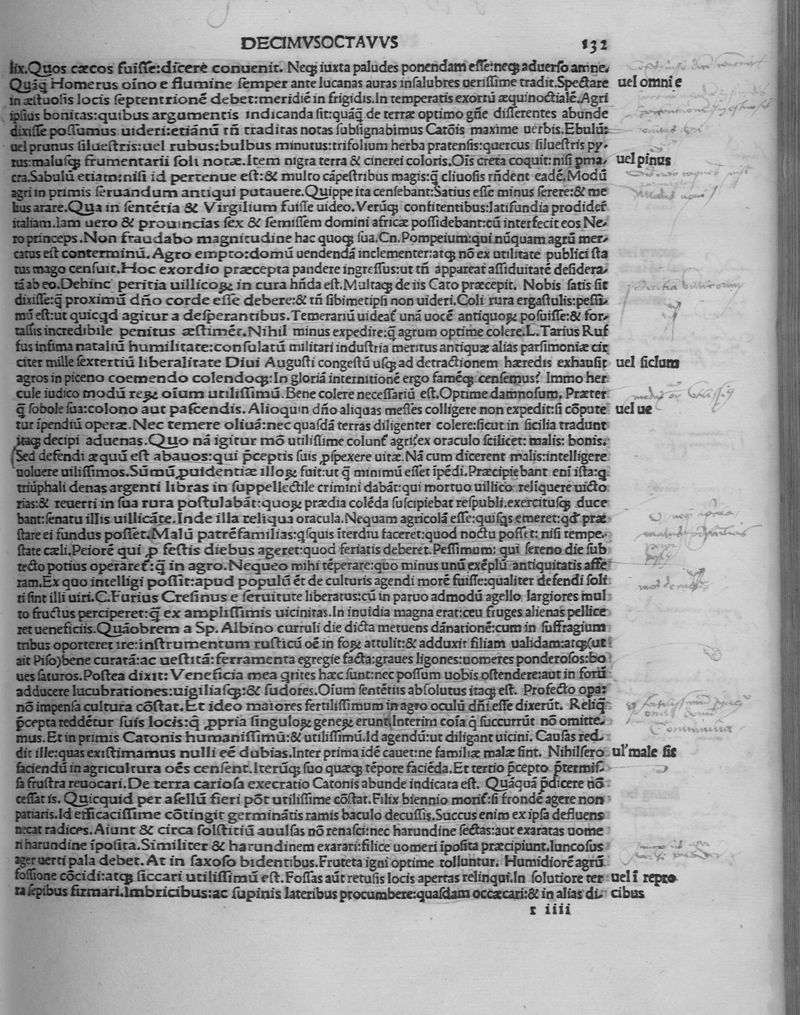 DECIMVSOCTAVVS 132
lix.Quos cæcos fuiſſe:dicerẽ conuenit. Neqꝫ iuxta paludes ponendam eſſe:neqꝫ aduerſo amne.
Quãq̃ Homerus oĩno e flumine ſemper ante lucanas auras inſalubres ueriſſime tradit.Spectare uel omni e
in æſtuoſis locis ſeptentrionẽ debet:meridiẽ in frigidis.In temperatis exortũ æquinoctialẽ.Agri
ipſius bonitas:quibus argumentis indicanda ſit:quãq̃ de terræ optimo gñe diſſerentes abunde
dixiſſe poſſumus uideri:etiãnũ tñ traditas notas ſubſignabimus Catõis maxime uerbis.Ebulũ:
uel prunus ſilueſtris:uel rubus:bulbus minutus:trifolium herba pratenſis:quercus ſilueſtris py-
rus:maluſqꝫ frumentarii ſoli notæ.Item nigra terra & cinerei coloris.Oĩs creta coquit:niſi pma- uel pinus
cra.Sabulũ etiam:niſi id pertenue eſt:& multo cãpeſtribus magis:q̃ cliuoſis rñdent eadẽ.Modũ
agri in primis ſeruandum antiqui putauere.Quippe ita cenſebant:Satius eſſe minus ſerere:& me
lius arare.Qua in ſentẽtia & Virgilium fuiſſe uideo.Verũqꝫ confitentibus:latifundia prodidef
italiam.Iam uero & prouincias ſex & ſemiſſem domini africæ poſſidebant:cũ interfecit eos Ne-
ro princeps.Non fraudabo magnitudine hac quoqꝫ ſua.Cn.Pompeium:qui nũquam agrũ mer-
catus eſt conterminũ.Agro empto:domũ uendendã inclementer:atqꝫ nõ ex utilitate publici ſta
tus mago cenſuit.Hoc exordio præcepta pandere ingreſſus:ut tñ appareat aſſiduitatẽ deſidera-
tã ab eo.Dehinc peritia uillicoꝝ in cura hñda eſt.Multaqꝫ de iis Cato præcepit. Nobis ſatis ſit
dixiſſe:q̃ proximũ dño corde eſſe debere:& tñ ſibimetipſi non uideri.Coli rura ergaſtulis:peſſi-
mũ eſt:ut quicqd agitur a deſperantibus.Temerariũ uideat unã uocẽ antiquoꝝ poſuiſſe:& for-
taſſis incredibile penitus æſtimẽr.Nihil minus expedire:q̃ agrum optime colere.L.Tarius Ruf
fus infima nataliũ humilitate:conſulatũ militari induſtria meritus antiquæ alias parſimoniæ cir
citer mille ſextertiũ liberalitate Diui Auguſti congeſtũ uſqꝫ ad detractionem hæredis exhauſit uel ſiclum
agros in piceno coemendo colendoqꝫ:In gloriã internitionẽ ergo famẽqꝫ cenſemus? Immo her
cule iudico modũ reꝝ oĩum utiliſſimũ.Bene colere neceſſariũ eſt.Optime damnoſum. Præter
q̃ ſobole ſua:colono aut paſcendis. Alioquin dño aliquas meſſes colligere non expedit:ſi cõpute uel ue
tur ĩpendiũ operæ.Nec temere oliuã:nec quaſdã terras diligenter colere:ſicut in ſicilia tradunt
itaqꝫ decipi aduenas.Quo nã igitur mõ utiliſſime colunt agri?ex oraculo ſcilicet: malis: bonis.
Sed defendi æquũ eſt abauos:qui p̃ceptis ſuis ꝓſpexere uitæ. Nã cum dicerent malis:intelligere
uoluere uiliſſimos.Sũmũ ꝓuidentiæ illoꝝ fuit:ut q̃ minimũ eſſet ĩpẽdi.Præcipiebant enĩ iſta:q
triũphali denas argenti libras in ſuppellectile crimini dabãt:qui mortuo uillico reliquere uicto
rias:& reuerti in ſua rura poſtulabãt:quoꝝ prædia colẽda ſuſcipiebat reſpubli.exercituſqꝫ duce
bant:ſenatu illis uillicãte.Inde illa reliqua oracula.Nequam agricolã eſſe:quiſqs emeret:qd præ
ſtare ei fundus poſſet.Malũ patrẽfamilias:qſquis ĩterdiu faceret:quod noctu poſſet: niſi tempe-
ſtate cæli.Peiorẽ qui ꝓ feſtis diebus ageret:quod feriatis deberet.Peſſimum: qui ſereno die ſub
tecto potius operaret:q̃ in agro.Nequeo mihi tẽperare:quo minus unũ exẽplũ antiquitatis affe
ram.Ex quo intelligi poſſit:apud populũ ẽt de culturis agendi morẽ fuiſſe:qualiter defendi ſoli
ti ſint illi uiri.C.Furius Creſinus e ſeruitute liberatus:cũ in paruo admodũ agello largiores mul
to fructus perciperet:q̃ ex ampliſſimis uicinitas.In inuidia magna erat:ceu fruges alienas pellice
ret ueneficiis.Quãobrem a Sp. Albino curruli die dicta metuens dãnationẽ:cum in ſuffragium
tribus oporteret ire:inſtrumentum ruſticũ oẽ in foꝝ attulit:& adduxit filiam ualidam:atqꝫ(ut
ait Piſo)bene curatã:ac ueſtitã:ferramenta egregie facta:graues ligones:uomeres ponderoſos:bo
ues ſaturos.Poſtea dixit:Veneficia mea qrites hæc ſunt:nec poſſum uobis oſtendere:aut in forũ
adducere lucubrationes:uigiliaſqꝫ:& ſudores.Oĩum ſentẽtiis abſolutus itaqꝫ eſt. Profecto opa:
nõ impenſa cultura cõſtat.Et ideo maiores fertiliſſimum in agro oculũ dñi eſſe dixerũt. Reliq
p̃cepta reddẽtur ſuis locis:q̃ ꝓpria ſinguloꝝ geneꝝ erunt.Interim coĩa q̃ ſuccurrũt nõ omitte-
mus.Et in primis Catonis humaniſſimũ:& utiliſſimũ.Id agendũ:ut diligant uicini. Cauſas red-
dit ille:quas exiſtimamus nulli eẽ dubias.Inter prima idẽ cauet:ne familiæ malæ ſint. Nihil ſero ul' male ſit
faciendũ in agricultura oẽs cenſent.Iterũqꝫ ſuo quæqꝫ tẽpore faciẽda.Et tertio p̃cepto p̃termiſ-
ſa fruſtra reuocari.De terra carioſa execratio Catonis abunde indicata eſt. Quãquã p̃dicere nõ
ceſſat is. Quicquid per aſellũ fieri põt utiliſſime cõſtat.Filix biennio morit:ſi frondẽ agere non
patiaris.Id efficaciſſime cõtingit germinãtis ramis baculo decuſſis.Succus enim ex ipſa defluens
necat radices.Aiunt & circa ſolſtitiũ auulſas nõ renaſci:nec harundine ſectas:aut exaratas uome
ri harundine ĩpoſita.Similiter & harundinem exarari:filice uomeri ĩpoſita præcipiunt.Iuncoſus
ager uerti pala debet.At in ſaxoſo bidentibus.Fruteta igni optime tolluntur. Humidiorẽ agrũ
foſſione cõcidi:atqꝫ ſiccari utiliſſimũ eſt.Foſſas aũt retuſis locis apertas relinqui.In ſolutiore ter uel ĩ repro
ra ſepibus firmari.Imbricibus:ac ſupinis lateribus procumbere:quaſdam occæcari:& in alias di- cibus
r iiii